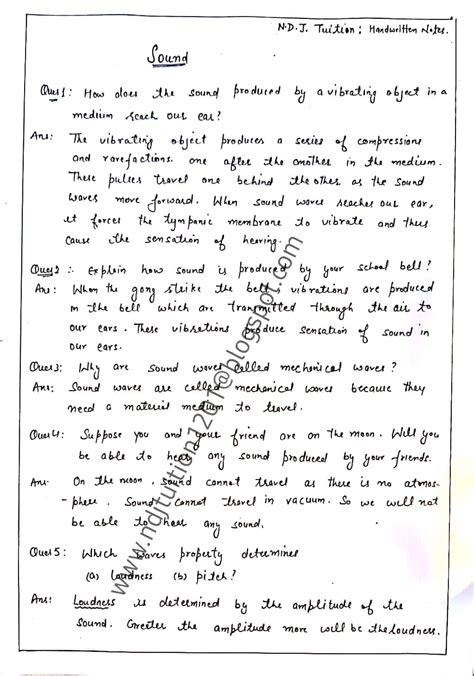 N.D.J. Tuition; Handwritten Notes.
Sound
Ques1: How does the sound produced by a vibrating object in a
medium reach our ear?
Ans: The vibrating object produces a series of compressions
and rarefactions. one after the another in the medium.
These pulses travel one behind the other as the sound
waves move forward. When sound waves reaches our ear,
it forces the tympanic membrane to vibrate and thus
cause the sensation of hearing.
Ques2: Explain how sound is produced by your school bell?
Ans: When the gong strike the bell, vibrations are produced
in the bell which are transmitted through the air to
our ears. These vibrations produce sensation of sound in
our ears.
Ques3: Why are sound waves called mechanical waves?
Ans: Sound waves are called mechanical waves because they
need a material medium to travel.
Ques4: Suppose you and your friend are on the moon. Will you
be able to hear any sound produced by your friends.
Ans- On the moon, sound cannot travel as there is no atmos-
-phere. Sound cannot travel in vacuum. So we will not
be able to hear any sound.
Ques5: Which waves property determines
(a) loudness (b) pitch?
Ans: Loudness is determined by the amplitude of the
sound. Greater the amplitude more will be the loudness.
www.ndjtuition1201@blogspot.com